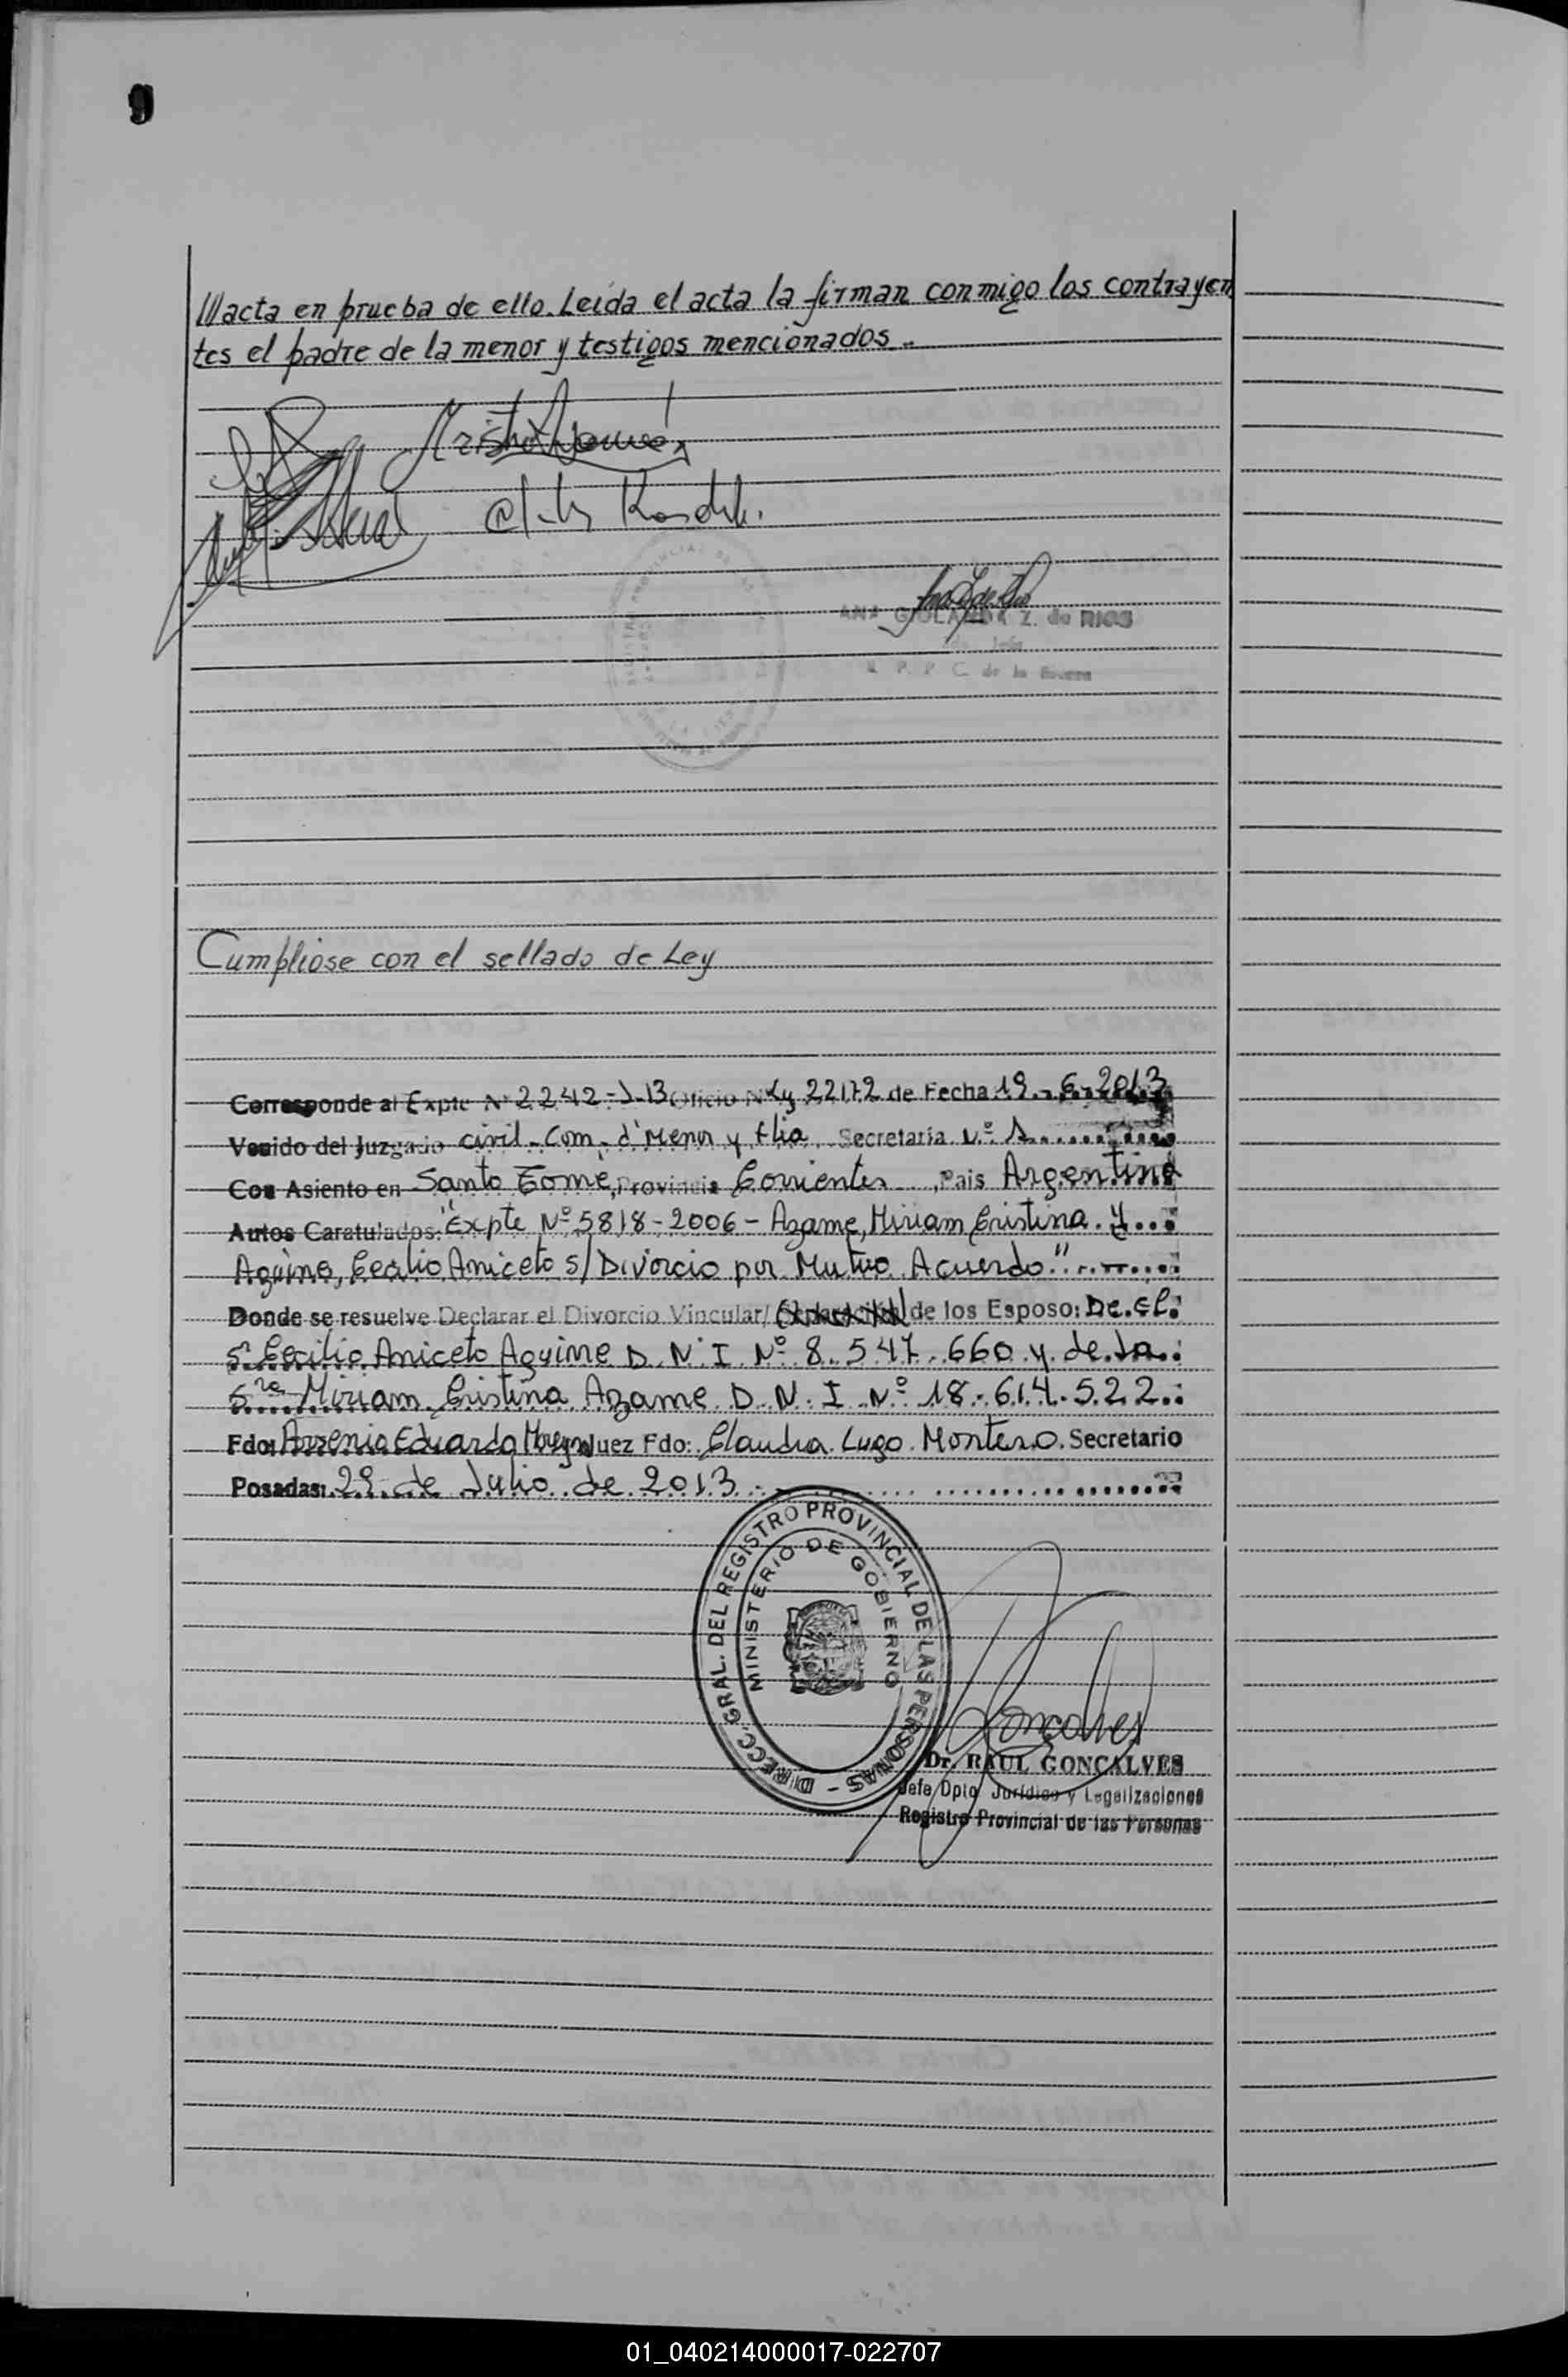 9
///acta en prueba de ello. Leída el acta la firman conmigo los contrayen
tes el padre de la menor y testigos mencionados.-
ANA YOLANDA Z. de RIOS
R. P. P. C. de la
Cumpliose con el sellado de Ley
Corresponde al Expte Nº 2242-J-13 Oficio Ley 22172 de Fecha 19-6-2013
Venido del Juzgado Civil-Com-d'Menor y flia. Secretaría Nº 1
Con Asiento en Santo Tome, Provincia Corrientes, Pais Argentina
Autos Caratulados: "Expte Nº 5818-2006 - Azame, Miriam Cristina. y
Aguirre, Cecilio Aniceto s/ Divorcio por Mutuo Acuerdo"
Donde se resuelve Declarar el Divorcio Vincular/ de los Esposo: De. El.
Sr Cecilio Aniceto Aguirre D.N.I Nº 8.547.660 y de la
Sra Miriam Cristina Azame D.N.I Nº 18.614.522
Fdo: Arsenio Eduardo Juez Fdo: Claudia Lugo Montero. Secretario
Posadas: 29 de Julio de 2013.-
DIRECC. GRAL. DEL REGISTRO PROVINCIAL DE LAS PERSONAS -
MINISTERIO DE GOBIERNO
Goncalves
Dr. RAUL GONCALVES
Jefe Dpto Jurídico y Legalizaciones
Registro Provincial de las Personas
01_040214000017-022707